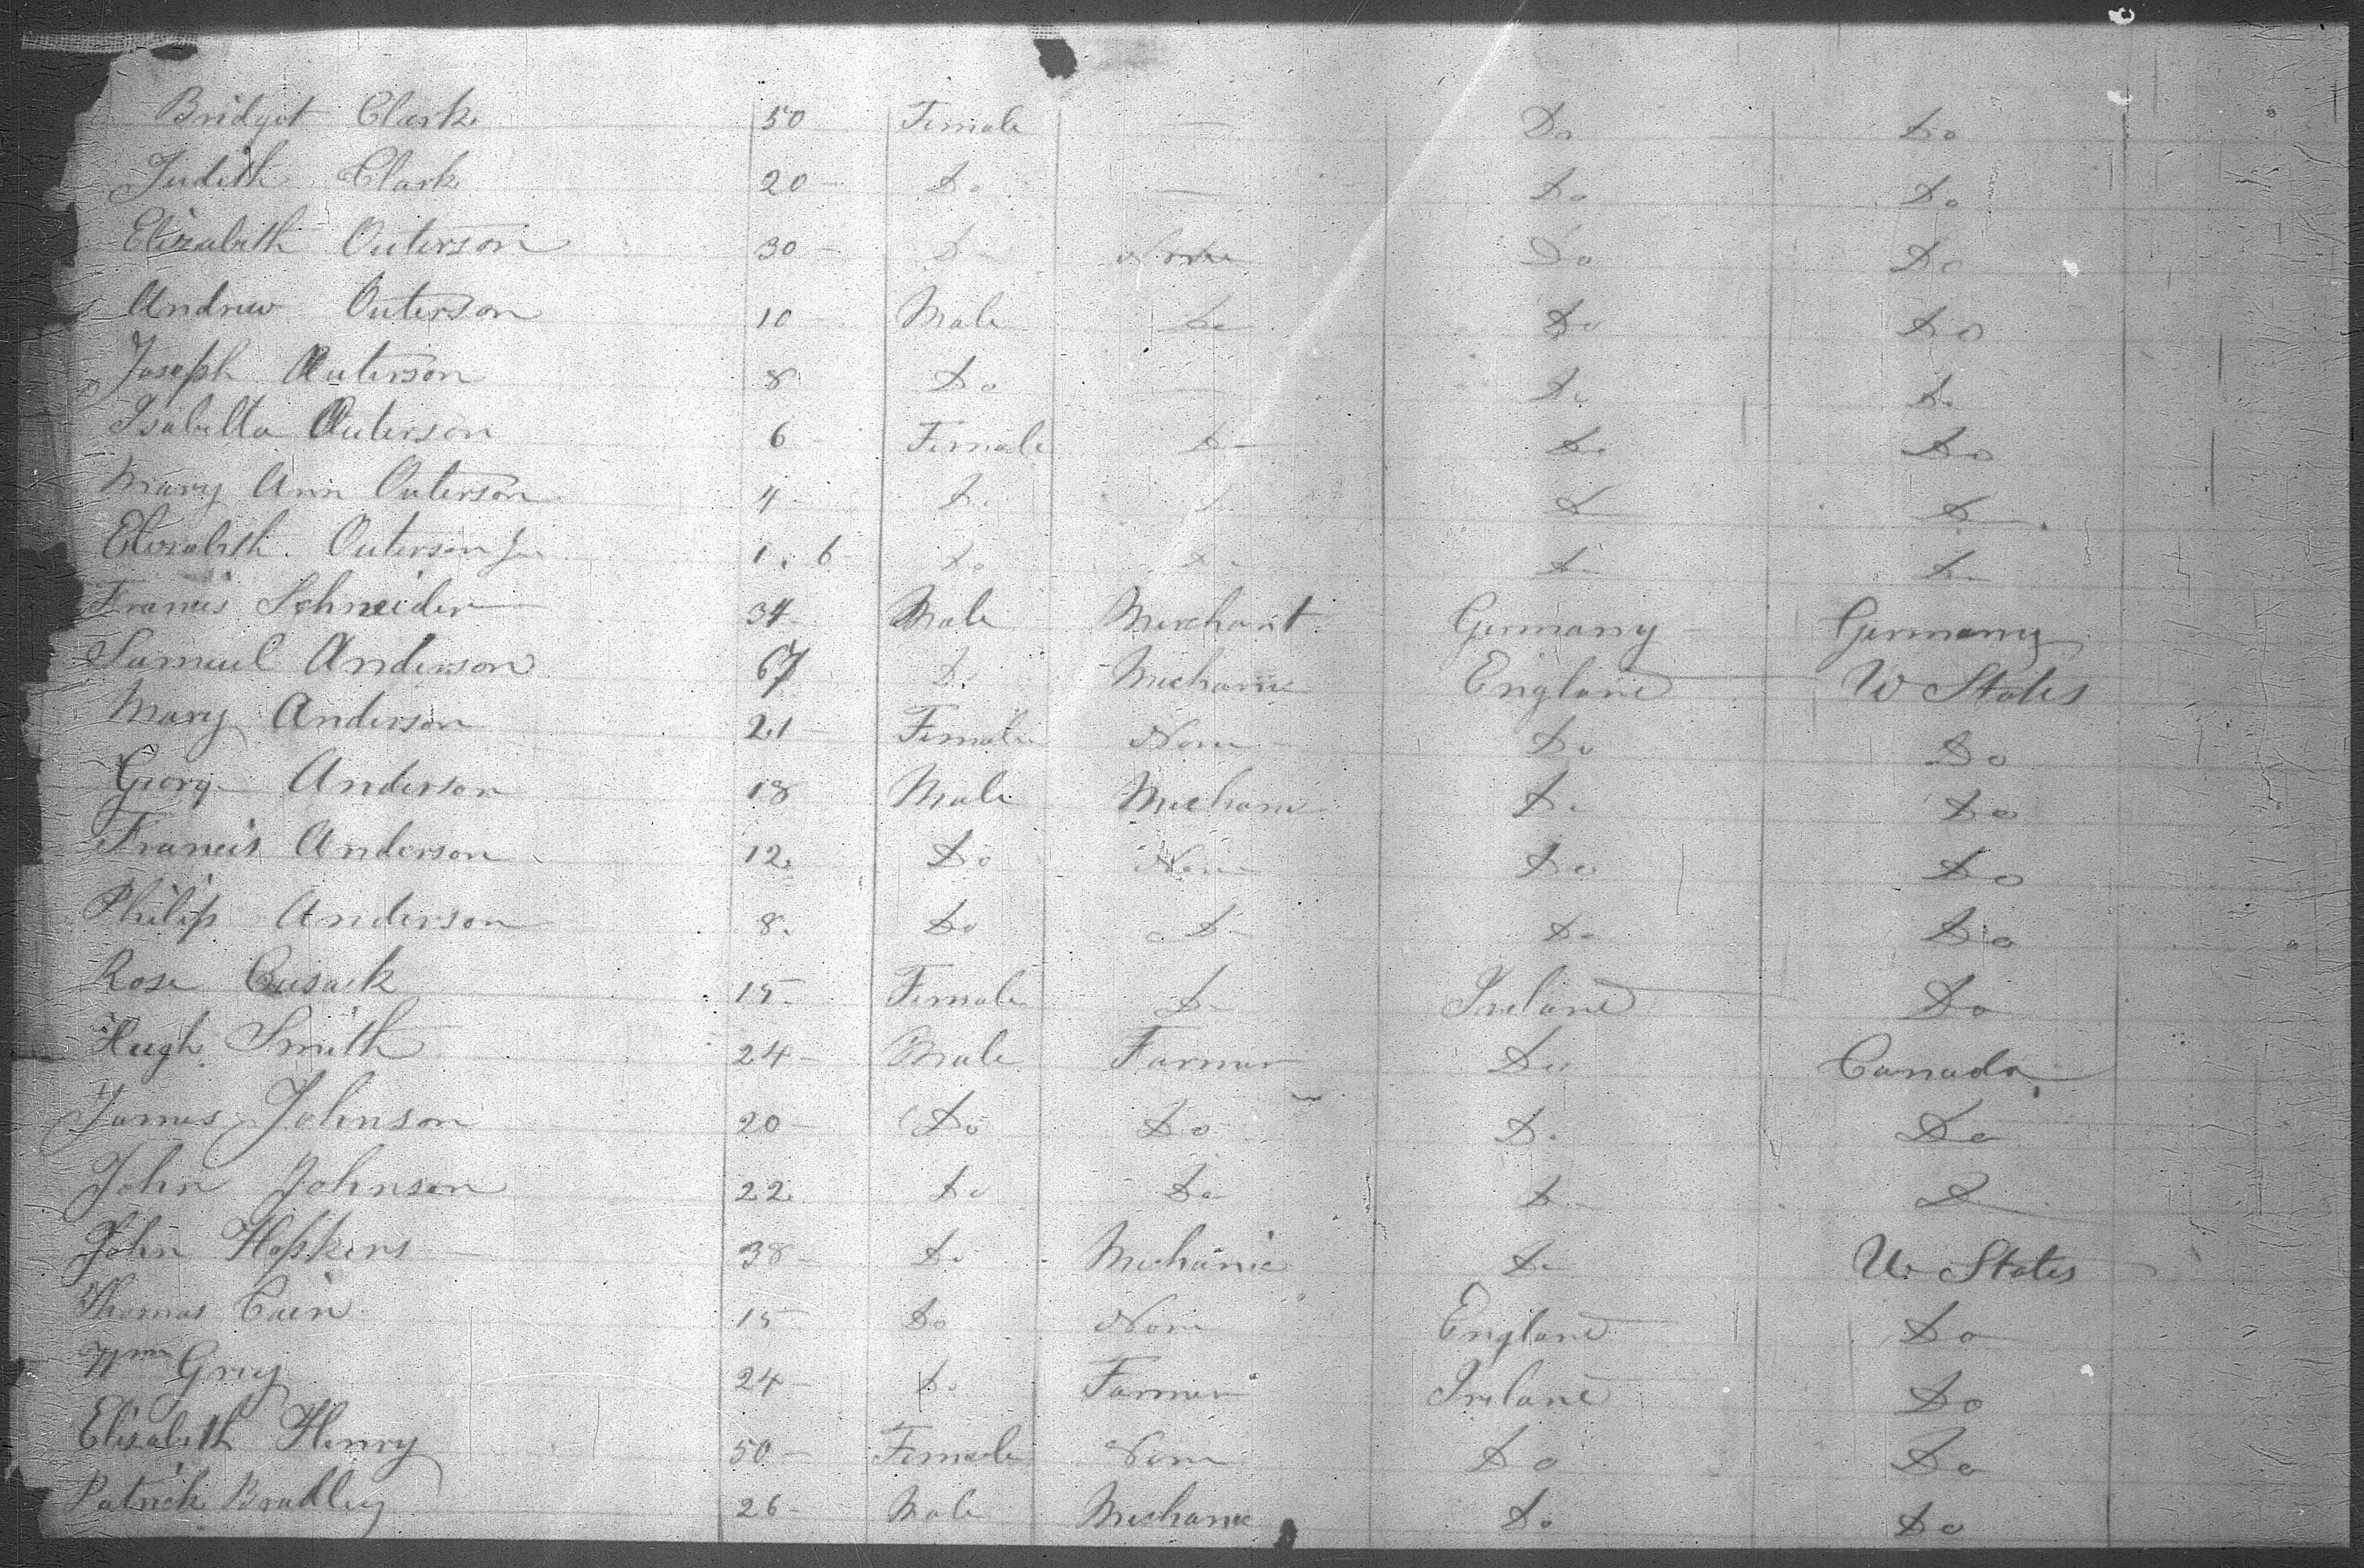 Bridget Clark 50 Female — Do Do
Judith Clark 20 Do — Do Do
Elizabeth Outerson 30 Do None Do Do
Andrew Outerson 10 Male Do Do Do
Joseph Outerson 8 Do — Do Do
Isabella Outerson 6 Female Do Do Do
Mary Ann Outerson 4 Do Do Do Do
Elizabeth Outerson Jun 1.6 Do Do Do Do
Francis Schneider 34 Male Merchant Germany Germany
Samuel Anderson 67 Do Mechanic England U States
Mary Anderson 21 Female None Do Do
George Anderson 18 Male Mechanic Do Do
Francis Anderson 12 Do None Do Do
Philip Anderson 8 Do Do Do Do
Rose Cusack 15 Female Do Ireland Do
Hugh Smith 24 Male Farmer Do Canada
James Johnson 20 Do Do Do Do
John Johnson 22 Do Do Do Do
John Hopkins 38 Do Mechanic Do U States
Thomas Cain 15 Do None England Do
Wm Grey 24 Do Farmer Ireland Do
Elisabeth Henry 50 Female None Do Do
Patrick Bradley 26 Male Mechanic Do Do